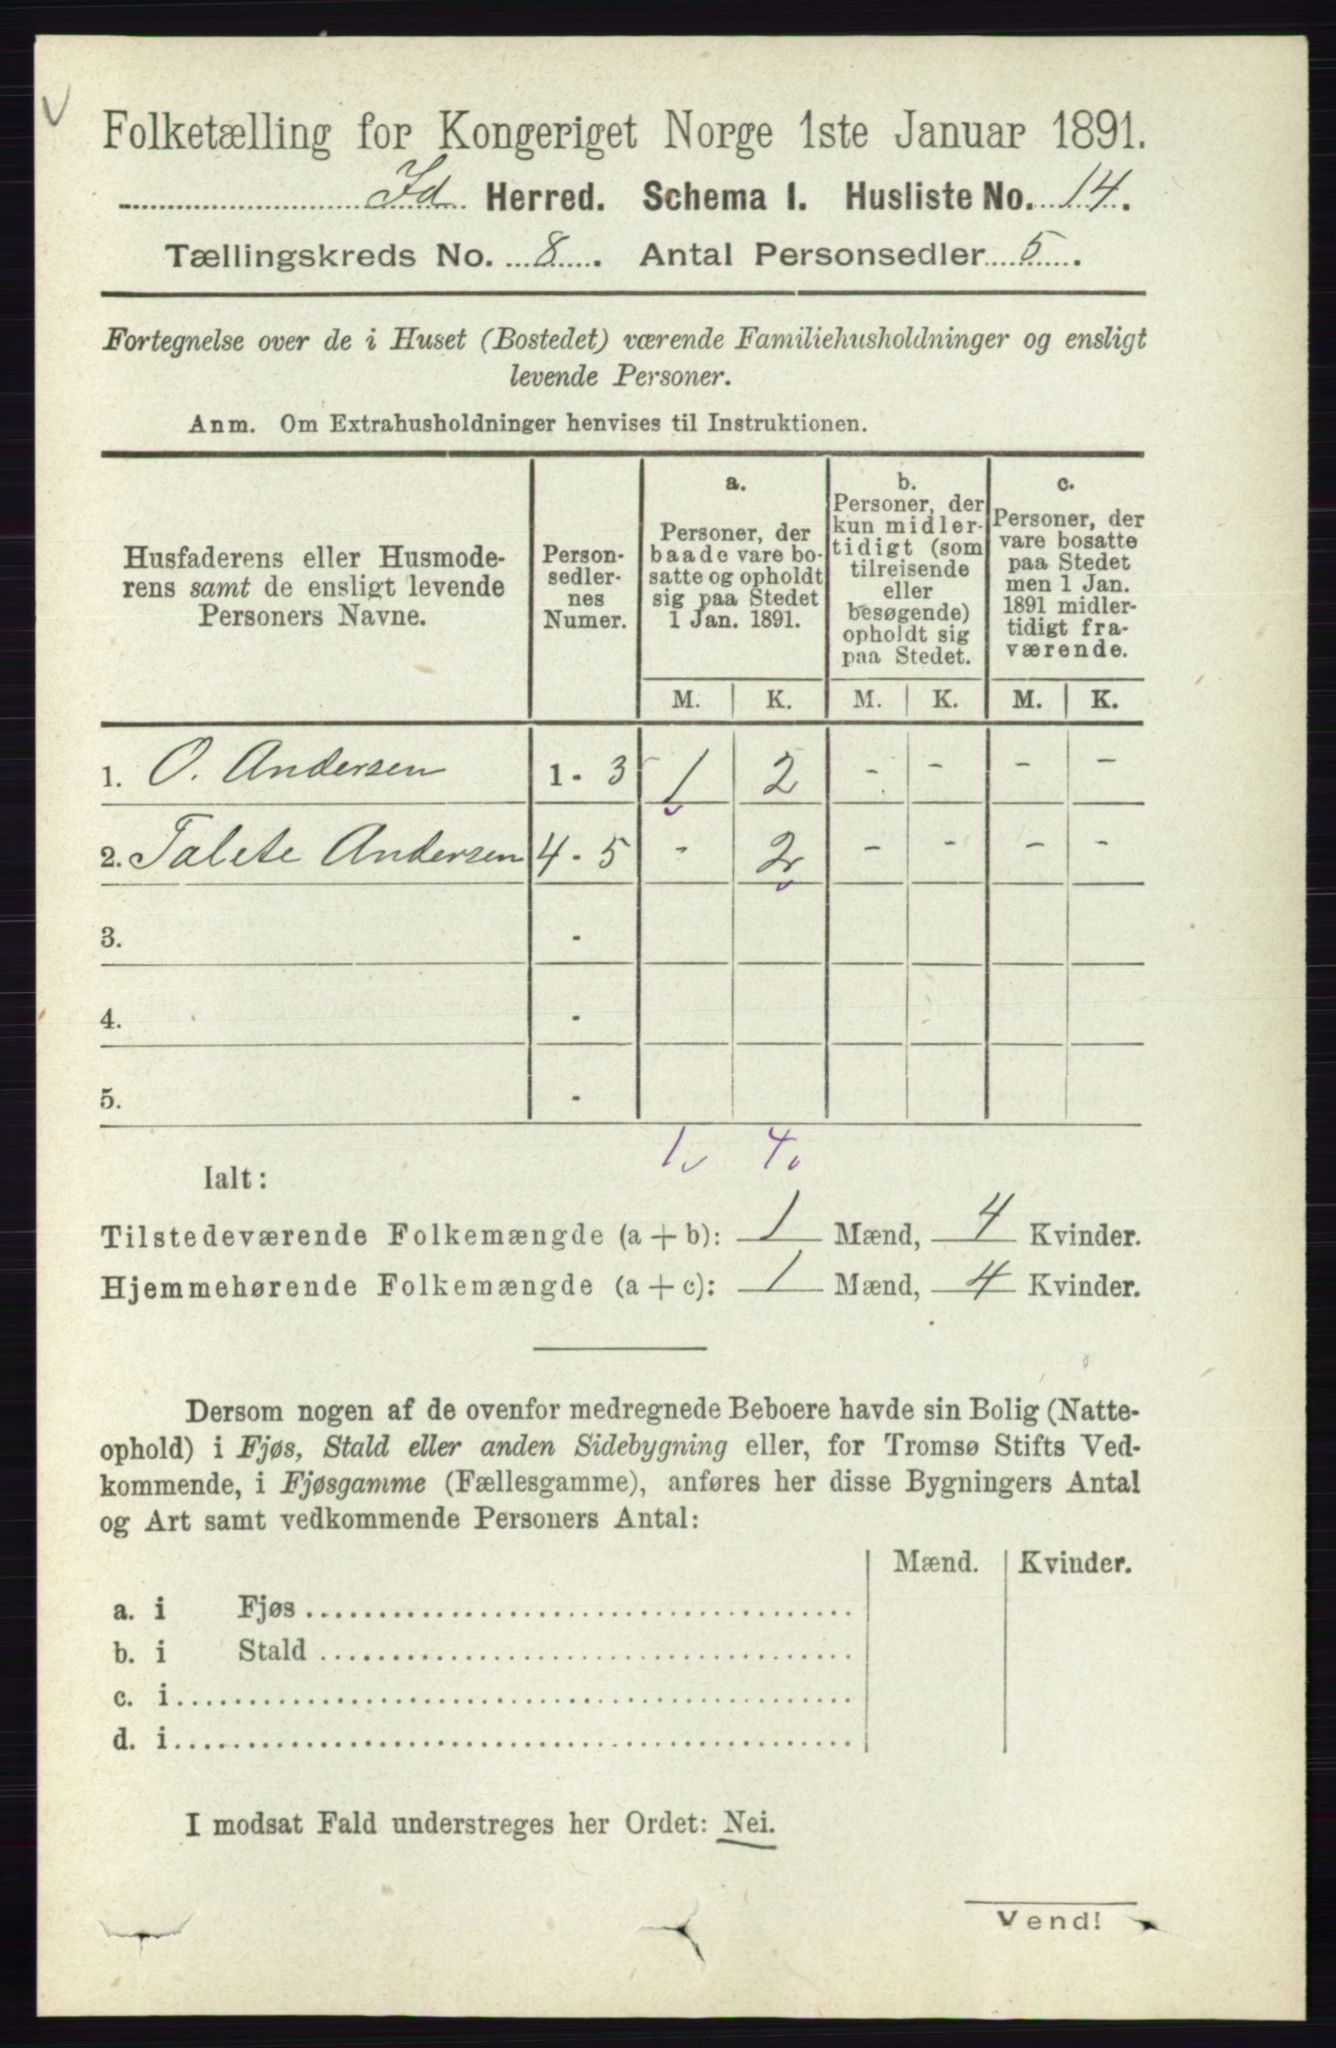 Folketælling for Kongeriget Norge 1ste Januar 1891.
Id Herred. Schema I. Husliste No. 14.
Tællingskreds No. 8. Antal Personsedler 5.
Fortegnelse over de i Huset (Bostedet) værende Familiehusholdninger og ensligt
levende Personer.
Anm. Om Extrahusholdninger henvises til Instruktionen.
Husfaderens eller Husmode-
rens samt de ensligt levende
Personers Navne.
Person-
sedler-
nes
Numer.
a.
Personer, der
baade vare bo-
satte og opholdt
sig paa Stedet
1 Jan. 1891.
b.
Personer, der
kun midler-
tidigt (som
tilreisende
eller
besøgende)
opholdt sig
paa Stedet.
c.
Personer, der
vare bosatte
paa Stedet
men 1 Jan.
1891 midler-
tidigt fra-
værende.
M. K. M. K. M. K.
1. O. Andersen 1 - 3 1 2 - - - -
2. Talete Andersen 4 - 5 - 2 - - - -
3. -
4. -
5. -
1 4
Ialt:
Tilstedeværende Folkemængde (a + b): 1 Mænd, 4 Kvinder.
Hjemmehørende Folkemængde (a + c): 1 Mænd, 4 Kvinder.
Dersom nogen af de ovenfor medregnede Beboere havde sin Bolig (Natte-
ophold) i Fjøs, Stald eller anden Sidebygning eller, for Tromsø Stifts Ved-
kommende, i Fjøsgamme (Fællesgamme), anføres her disse Bygningers Antal
og Art samt vedkommende Personers Antal:
Mænd. Kvinder.
a. i Fjøs
b. i Stald
c. i
d. i
I modsat Fald understreges her Ordet: Nei.
Vend!